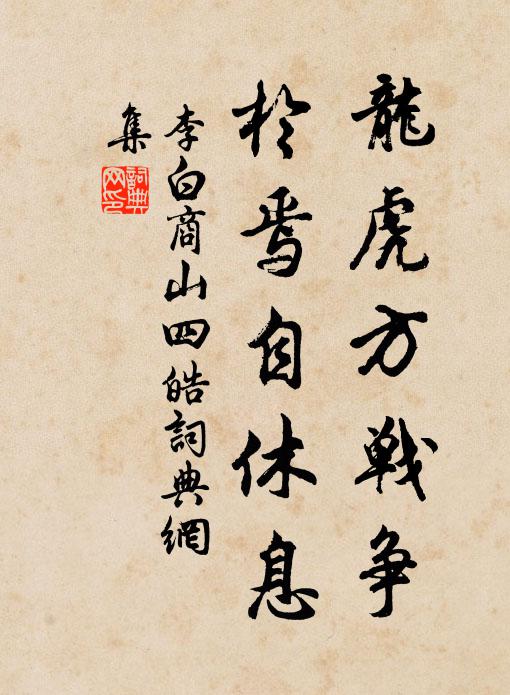 龍虎方戰爭
於焉自休息
李白商山四皓詞典網
集
詞典
网印